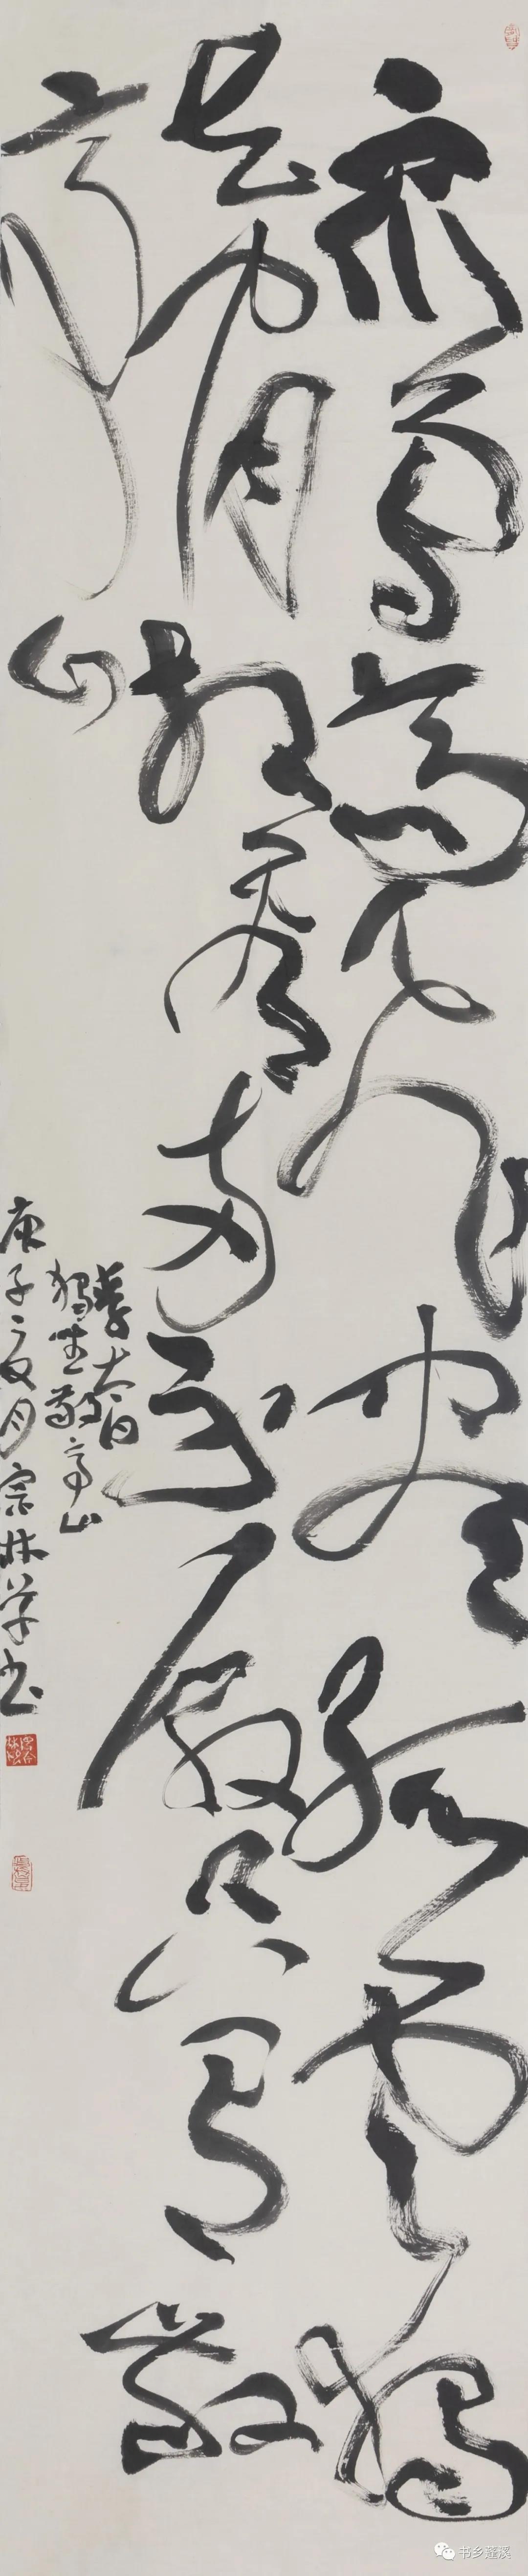 众鸟高飞尽孤云独
去闲相看两不厌只有敬
亭山
李太白
独坐敬亭山
庚子夏月宗林草书
书乡蓬溪